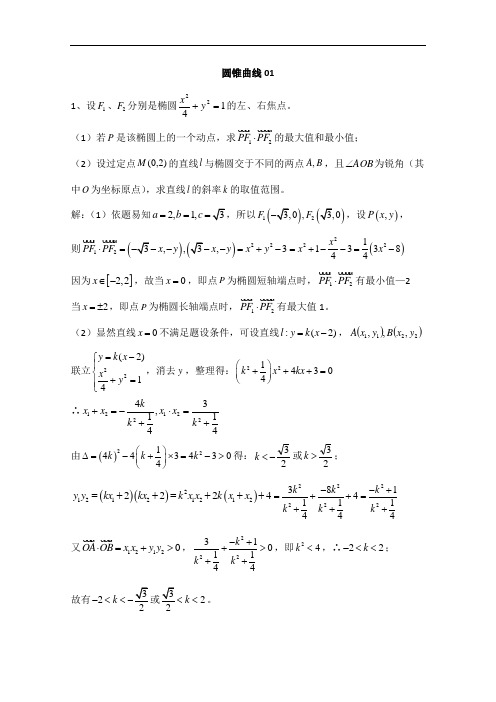 圆锥曲线01
1、设 F₁、F₂ 分别是椭圆 x²/4 + y² = 1 的左、右焦点。
（1）若 P 是该椭圆上的一个动点，求 PF₁·PF₂ 的最大值和最小值；
（2）设过定点 M(0,2) 的直线 l 与椭圆交于不同的两点 A,B，且∠AOB 为锐角（其
中 O 为坐标原点），求直线 l 的斜率 k 的取值范围。
解：（1）依题易知 a = 2, b = 1, c = √3，所以 F₁(-√3,0), F₂(√3,0)，设 P(x, y)，
则 PF₁·PF₂ = (-√3 - x, -y), (√3 - x, -y) = x² + y² - 3 = x² + 1 - x²/4 - 3 = 1/4(3x² - 8)
因为 x∈[-2,2]，故当 x = 0，即点 P 为椭圆短轴端点时，PF₁·PF₂ 有最小值—2
当 x = ±2，即点 P 为椭圆长轴端点时，PF₁·PF₂ 有最大值 1。
（2）显然直线 x = 0 不满足题设条件，可设直线 l : y = k(x - 2)，A(x₁, y₁), B(x₂, y₂)
联立 { y = k(x - 2) ; x²/4 + y² = 1 ，消去 y，整理得：(k² + 1/4)x² + 4kx + 3 = 0
∴ x₁ + x₂ = -4k/(k² + 1/4), x₁·x₂ = 3/(k² + 1/4)
由 Δ = (4k)² - 4(k + 1/4)×3 = 4k² - 3 > 0 得：k < -√3/2 或 k > √3/2；
y₁y₂ = (kx₁ + 2)(kx₂ + 2) = k²x₁x₂ + 2k(x₁ + x₂) + 4 = 3k²/(k² + 1/4) + -8k²/(k² + 1/4) + 4 = (-k² + 1)/(k² + 1/4)
又 OA·OB = x₁x₂ + y₁y₂ > 0，3/(k² + 1/4) + (-k² + 1)/(k² + 1/4) > 0，即 k² < 4，∴ -2 < k < 2；
故有 -2 < k < -√3/2 或 √3/2 < k < 2。